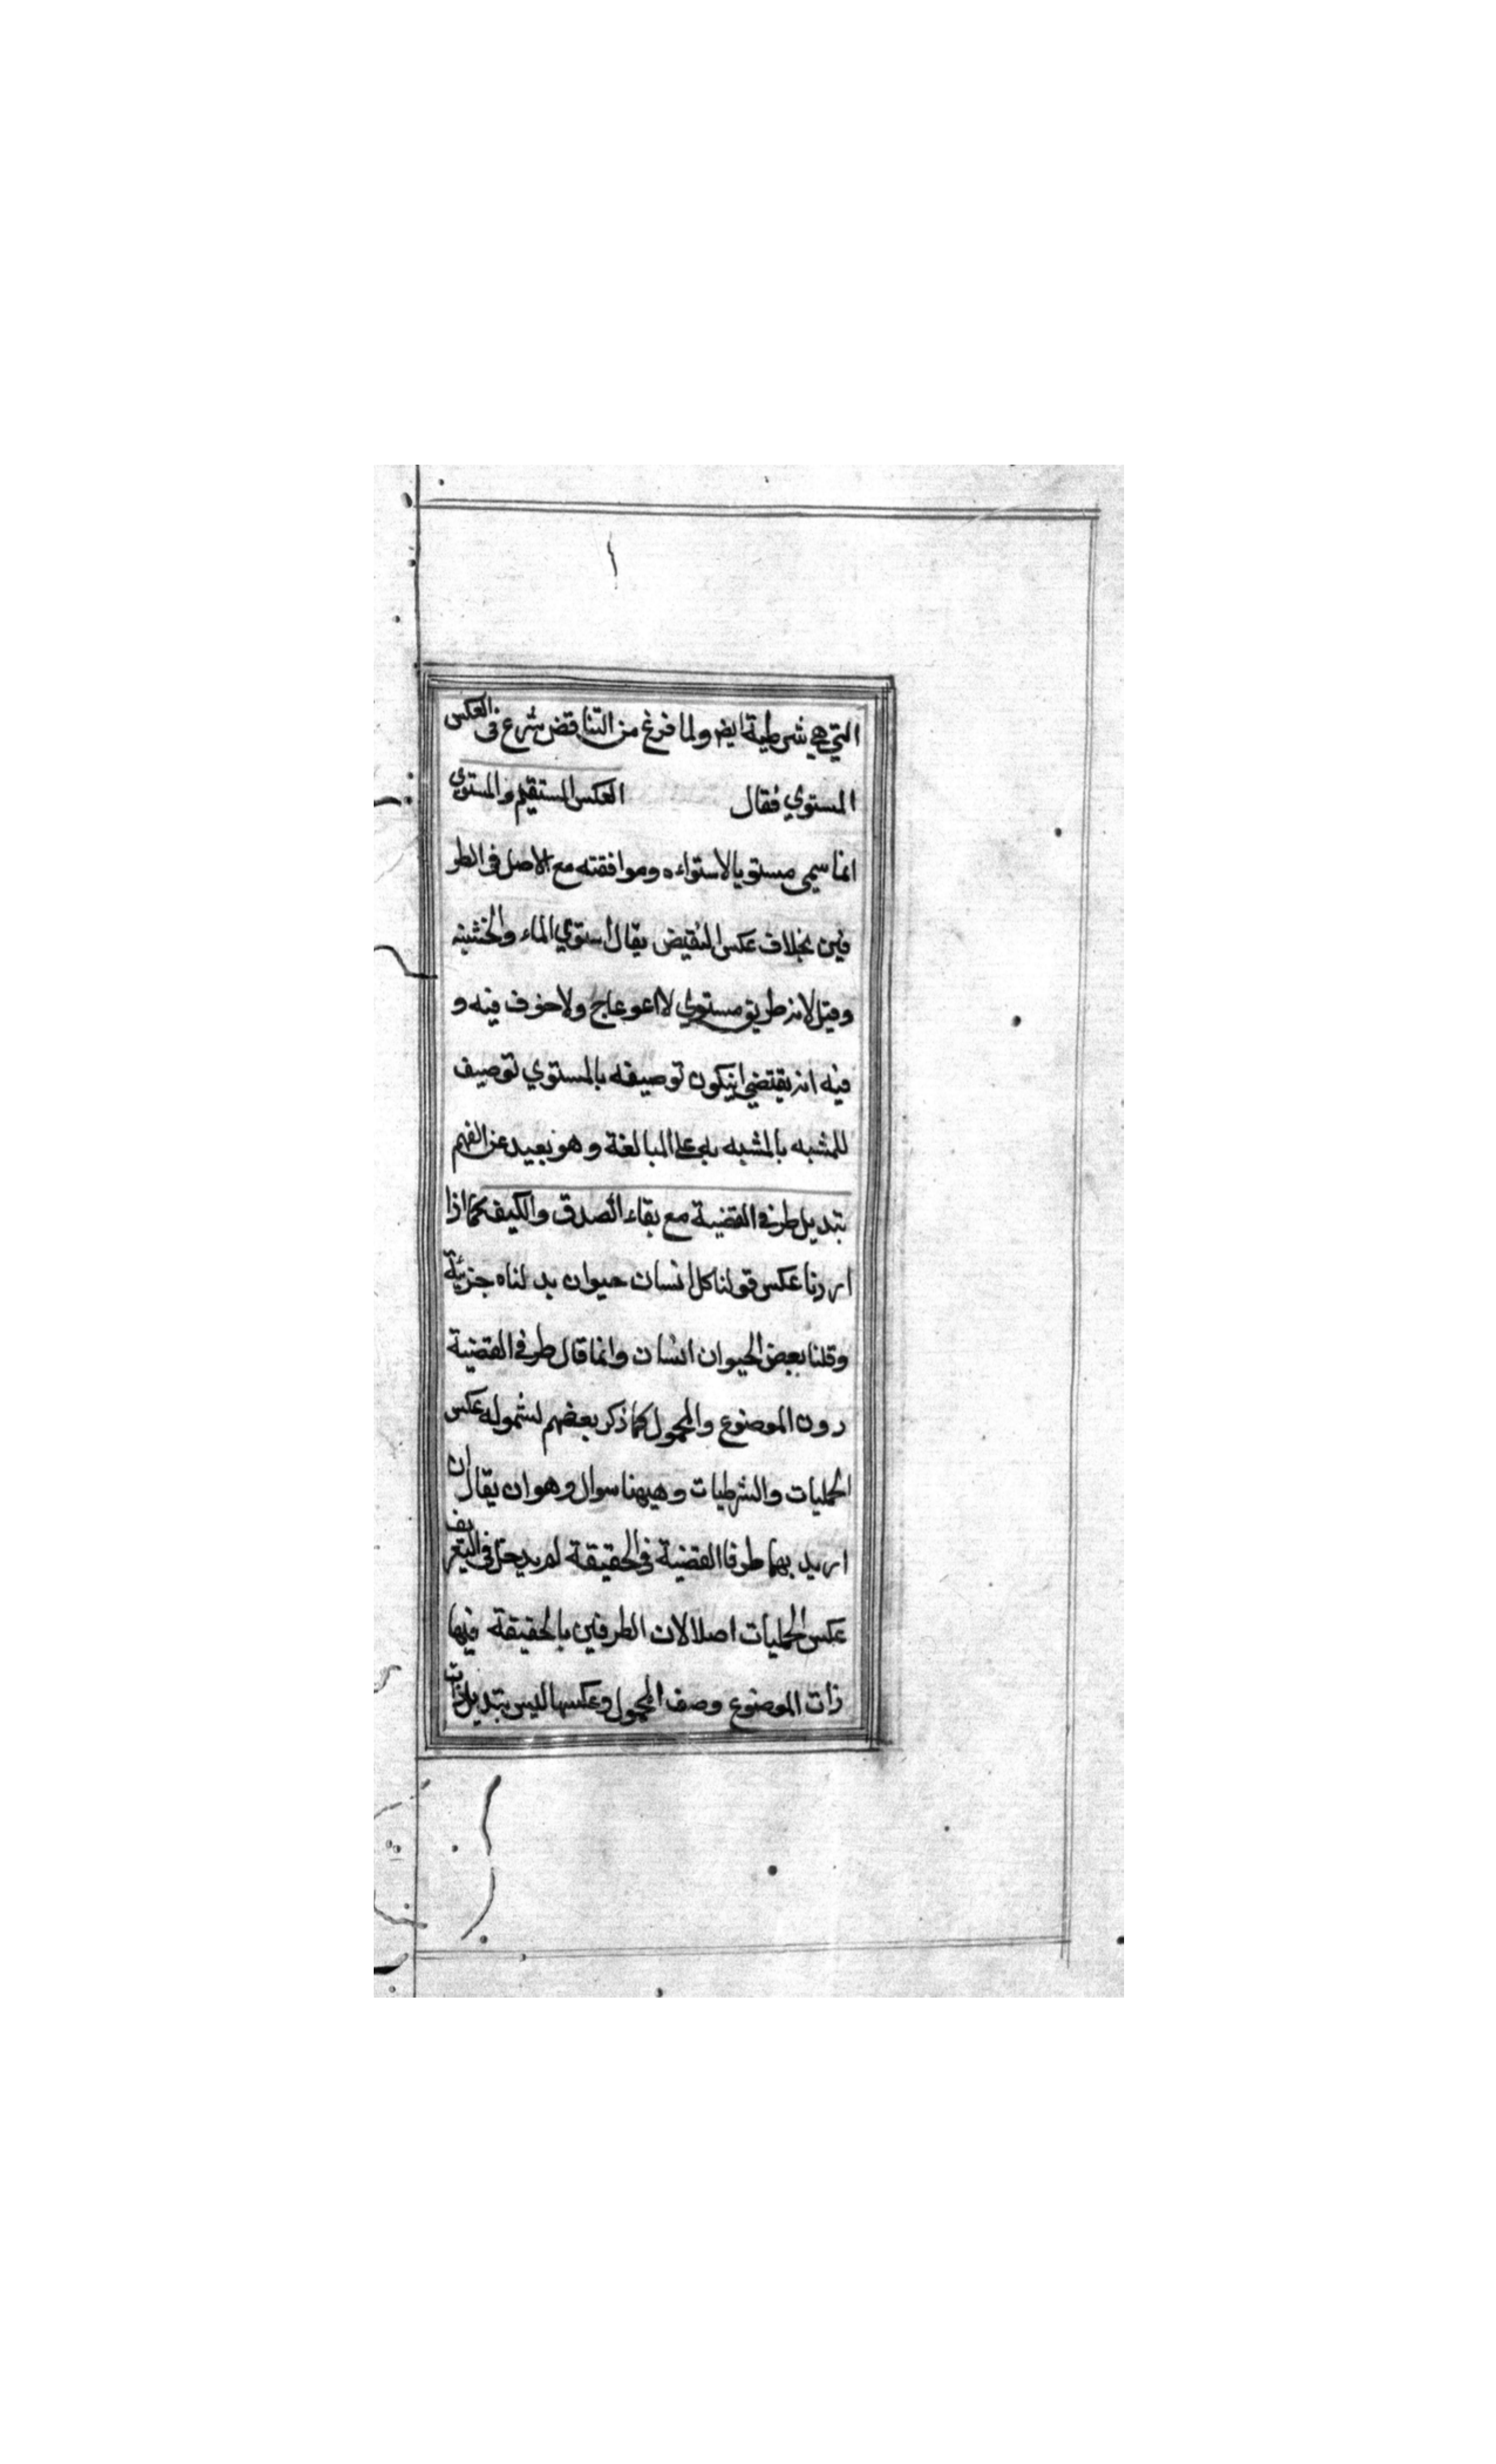 التي هي شرطية ايض ولما فرغ من التناقض شرع في العكس
المستوي فقال العكس المستقيم والمستوي
انما سمي مستويا لاستواءه وموافقته مع الاصل في الطر
فين بخلاف عكس النقيض يقال استوي الماء والخشبة
وقيل لانه طريق مستوي لا اعوجاج ولا خوف فيه و
فيه انه يقتضي ان يكون توصيفه بالمستوي توصيف
للمشبه بالمشبه به علي المبالغة وهو بعيد عن الفهم
تبديل طرفي القضية مع بقاء الصدق والكيف كما اذا
اردنا عكس قولنا كل انسان حيوان بدلناه جزئية
وقلنا بعض الحيوان انسان وانما قال طرفي القضية
دون الموضوع والمحمول كما ذكر بعضهم لشموله عكس
الحمليات والشرطيات وهيهنا سوال وهو ان يقال ان
اريد بهما طرفا القضية في الحقيقة لم يدخل في التعريف
عكس الحمليات اصلا لان الطرفين بالحقيقة فيها
ذات الموضوع وصف المحمول وعكسها ليس بتبديل ذات